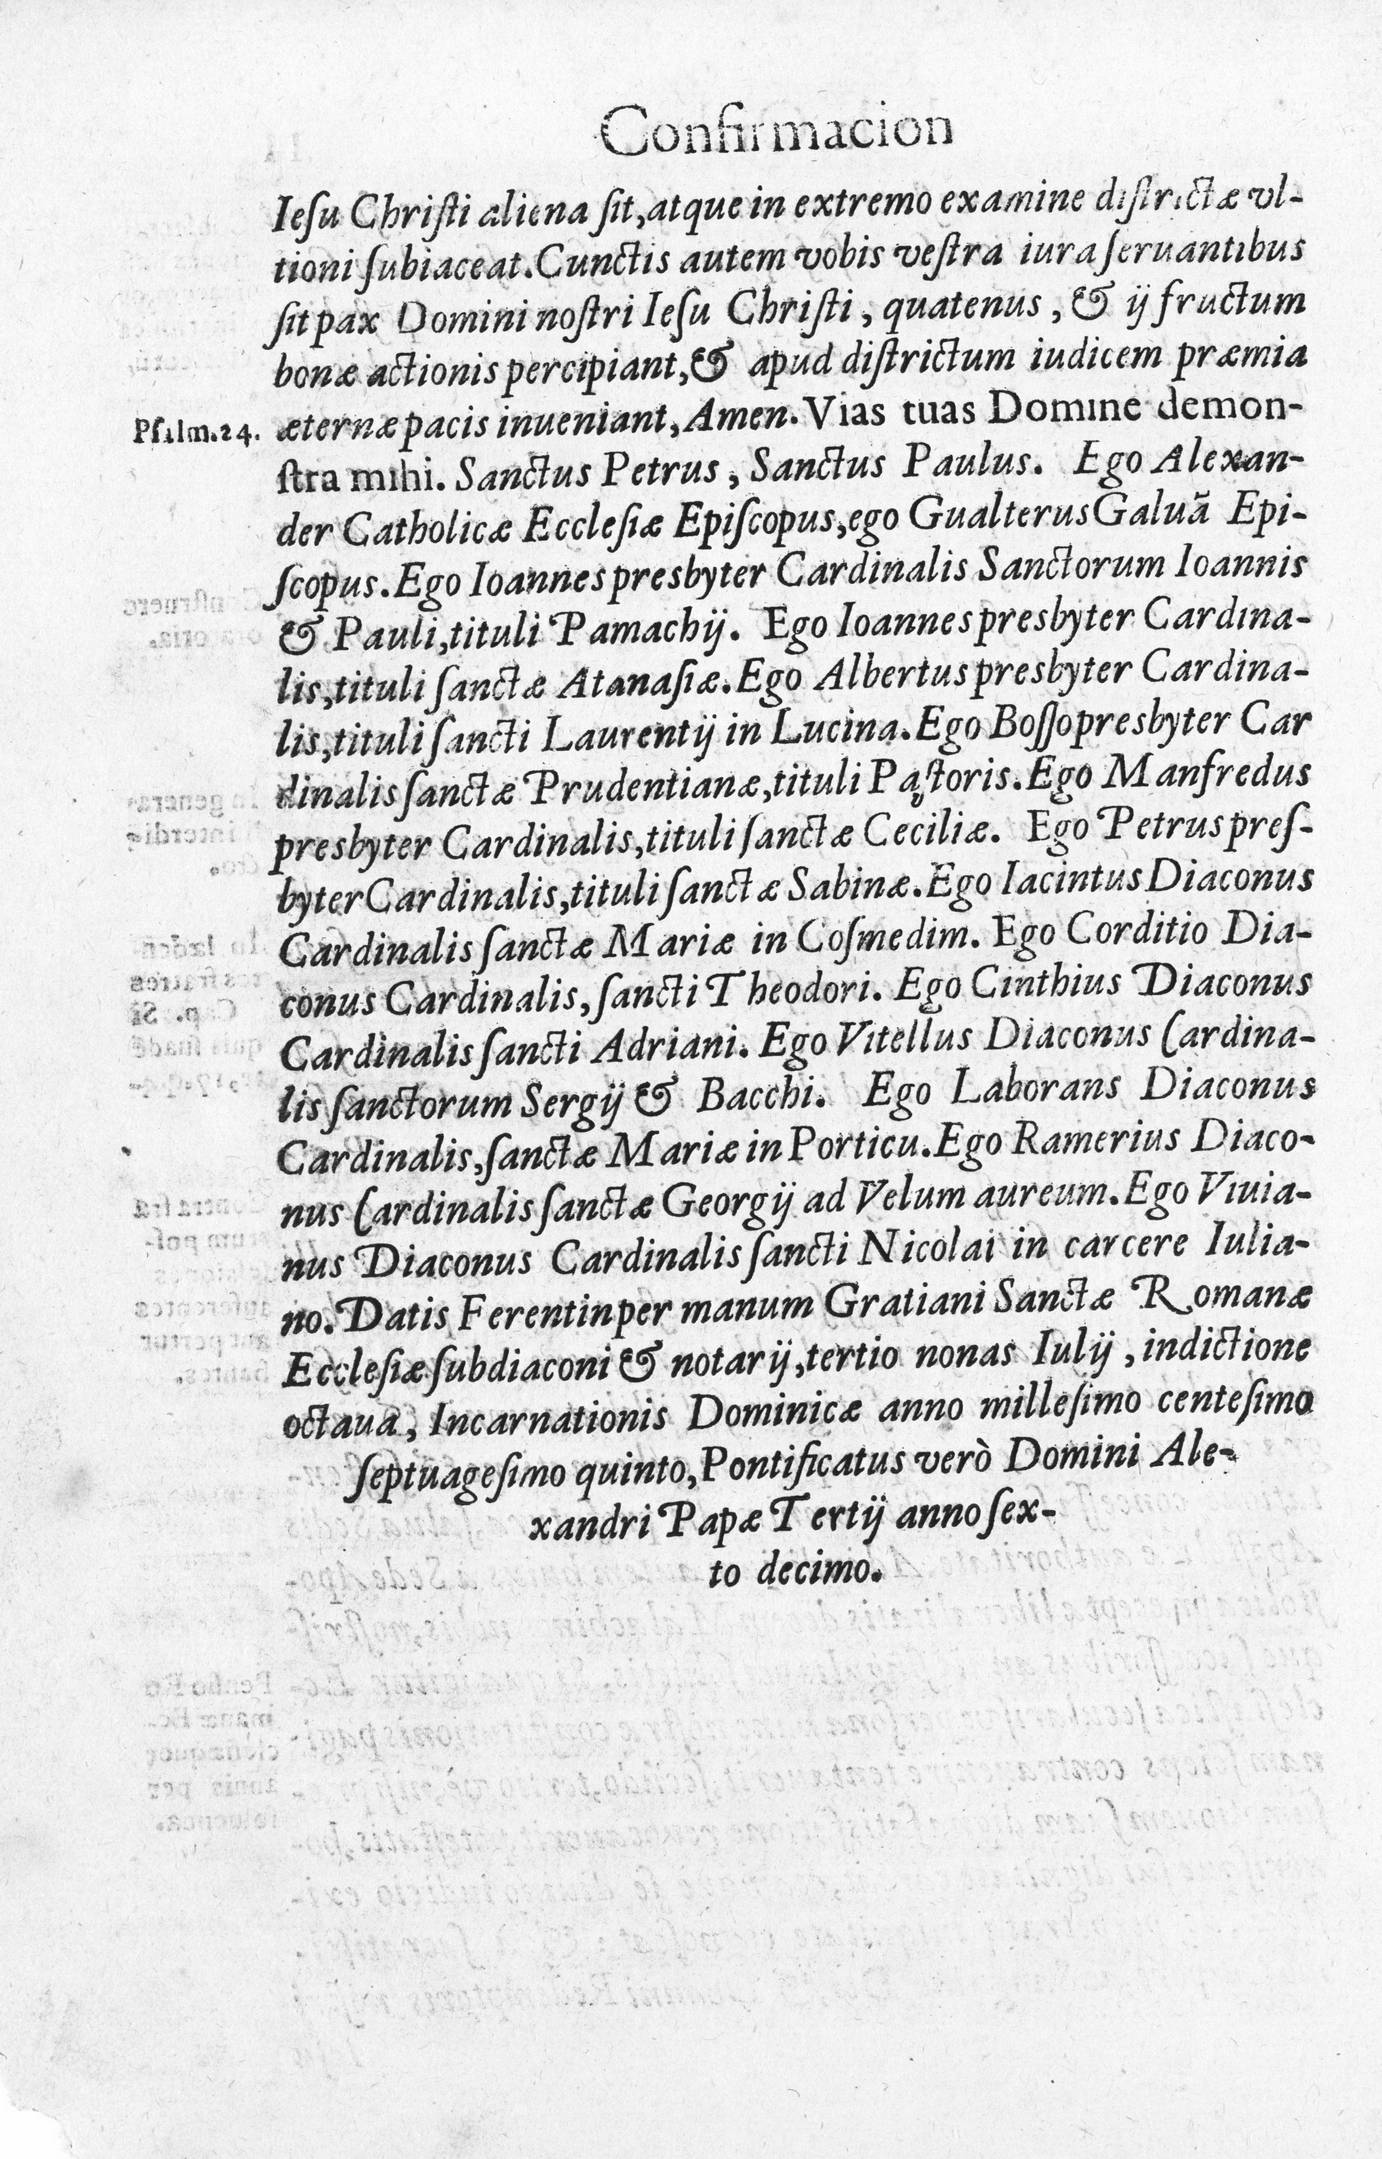 Confirmacion
Iesu Christi aliena sit, atque in extremo examine districtæ vl-
tioni subiaceat. Cunctis autem vobis vestra iura seruantibus
sit pax Domini nostri Iesu Christi, quatenus, & ij fructum
bonæ actionis percipiant, & apud districtum iudicem præmia
Psalm.24. æternæ pacis inueniant, Amen. Vias tuas Domine demon-
stra mihi. Sanctus Petrus, Sanctus Paulus. Ego Alexan-
der Catholicæ Ecclesiæ Episcopus, ego Gualterus Galuã Epi-
scopus. Ego Ioannes presbyter Cardinalis Sanctorum Ioannis
& Pauli, tituli Pamachij. Ego Ioannes presbyter Cardina-
lis, tituli sanctæ Atanasiæ. Ego Albertus presbyter Cardina-
lis, tituli sancti Laurentij in Lucina. Ego Bosso presbyter Car
dinalis sanctæ Prudentianæ, tituli Pastoris. Ego Manfredus
presbyter Cardinalis, tituli sanctæ Ceciliæ. Ego Petrus pres-
byter Cardinalis, tituli sanctæ Sabinæ. Ego Iacintus Diaconus
Cardinalis sanctæ Mariæ in Cosmedim. Ego Corditio Dia-
conus Cardinalis, sancti Theodori. Ego Cinthius Diaconus
Cardinalis sancti Adriani. Ego Vitellus Diaconus Cardina-
lis sanctorum Sergij & Bacchi. Ego Laborans Diaconus
Cardinalis, sanctæ Mariæ in Porticu. Ego Ramerius Diaco-
nus Cardinalis sanctæ Georgij ad Velum aureum. Ego Viuia-
nus Diaconus Cardinalis sancti Nicolai in carcere Iulia-
no. Datis Ferentin per manum Gratiani Sanctæ Romanæ
Ecclesiæ subdiaconi & notarij, tertio nonas Iulij, indictione
octaua, Incarnationis Dominicæ anno millesimo centesimo
septuagesimo quinto, Pontificatus verò Domini Ale-
xandri Papæ Tertij anno sex-
to decimo.